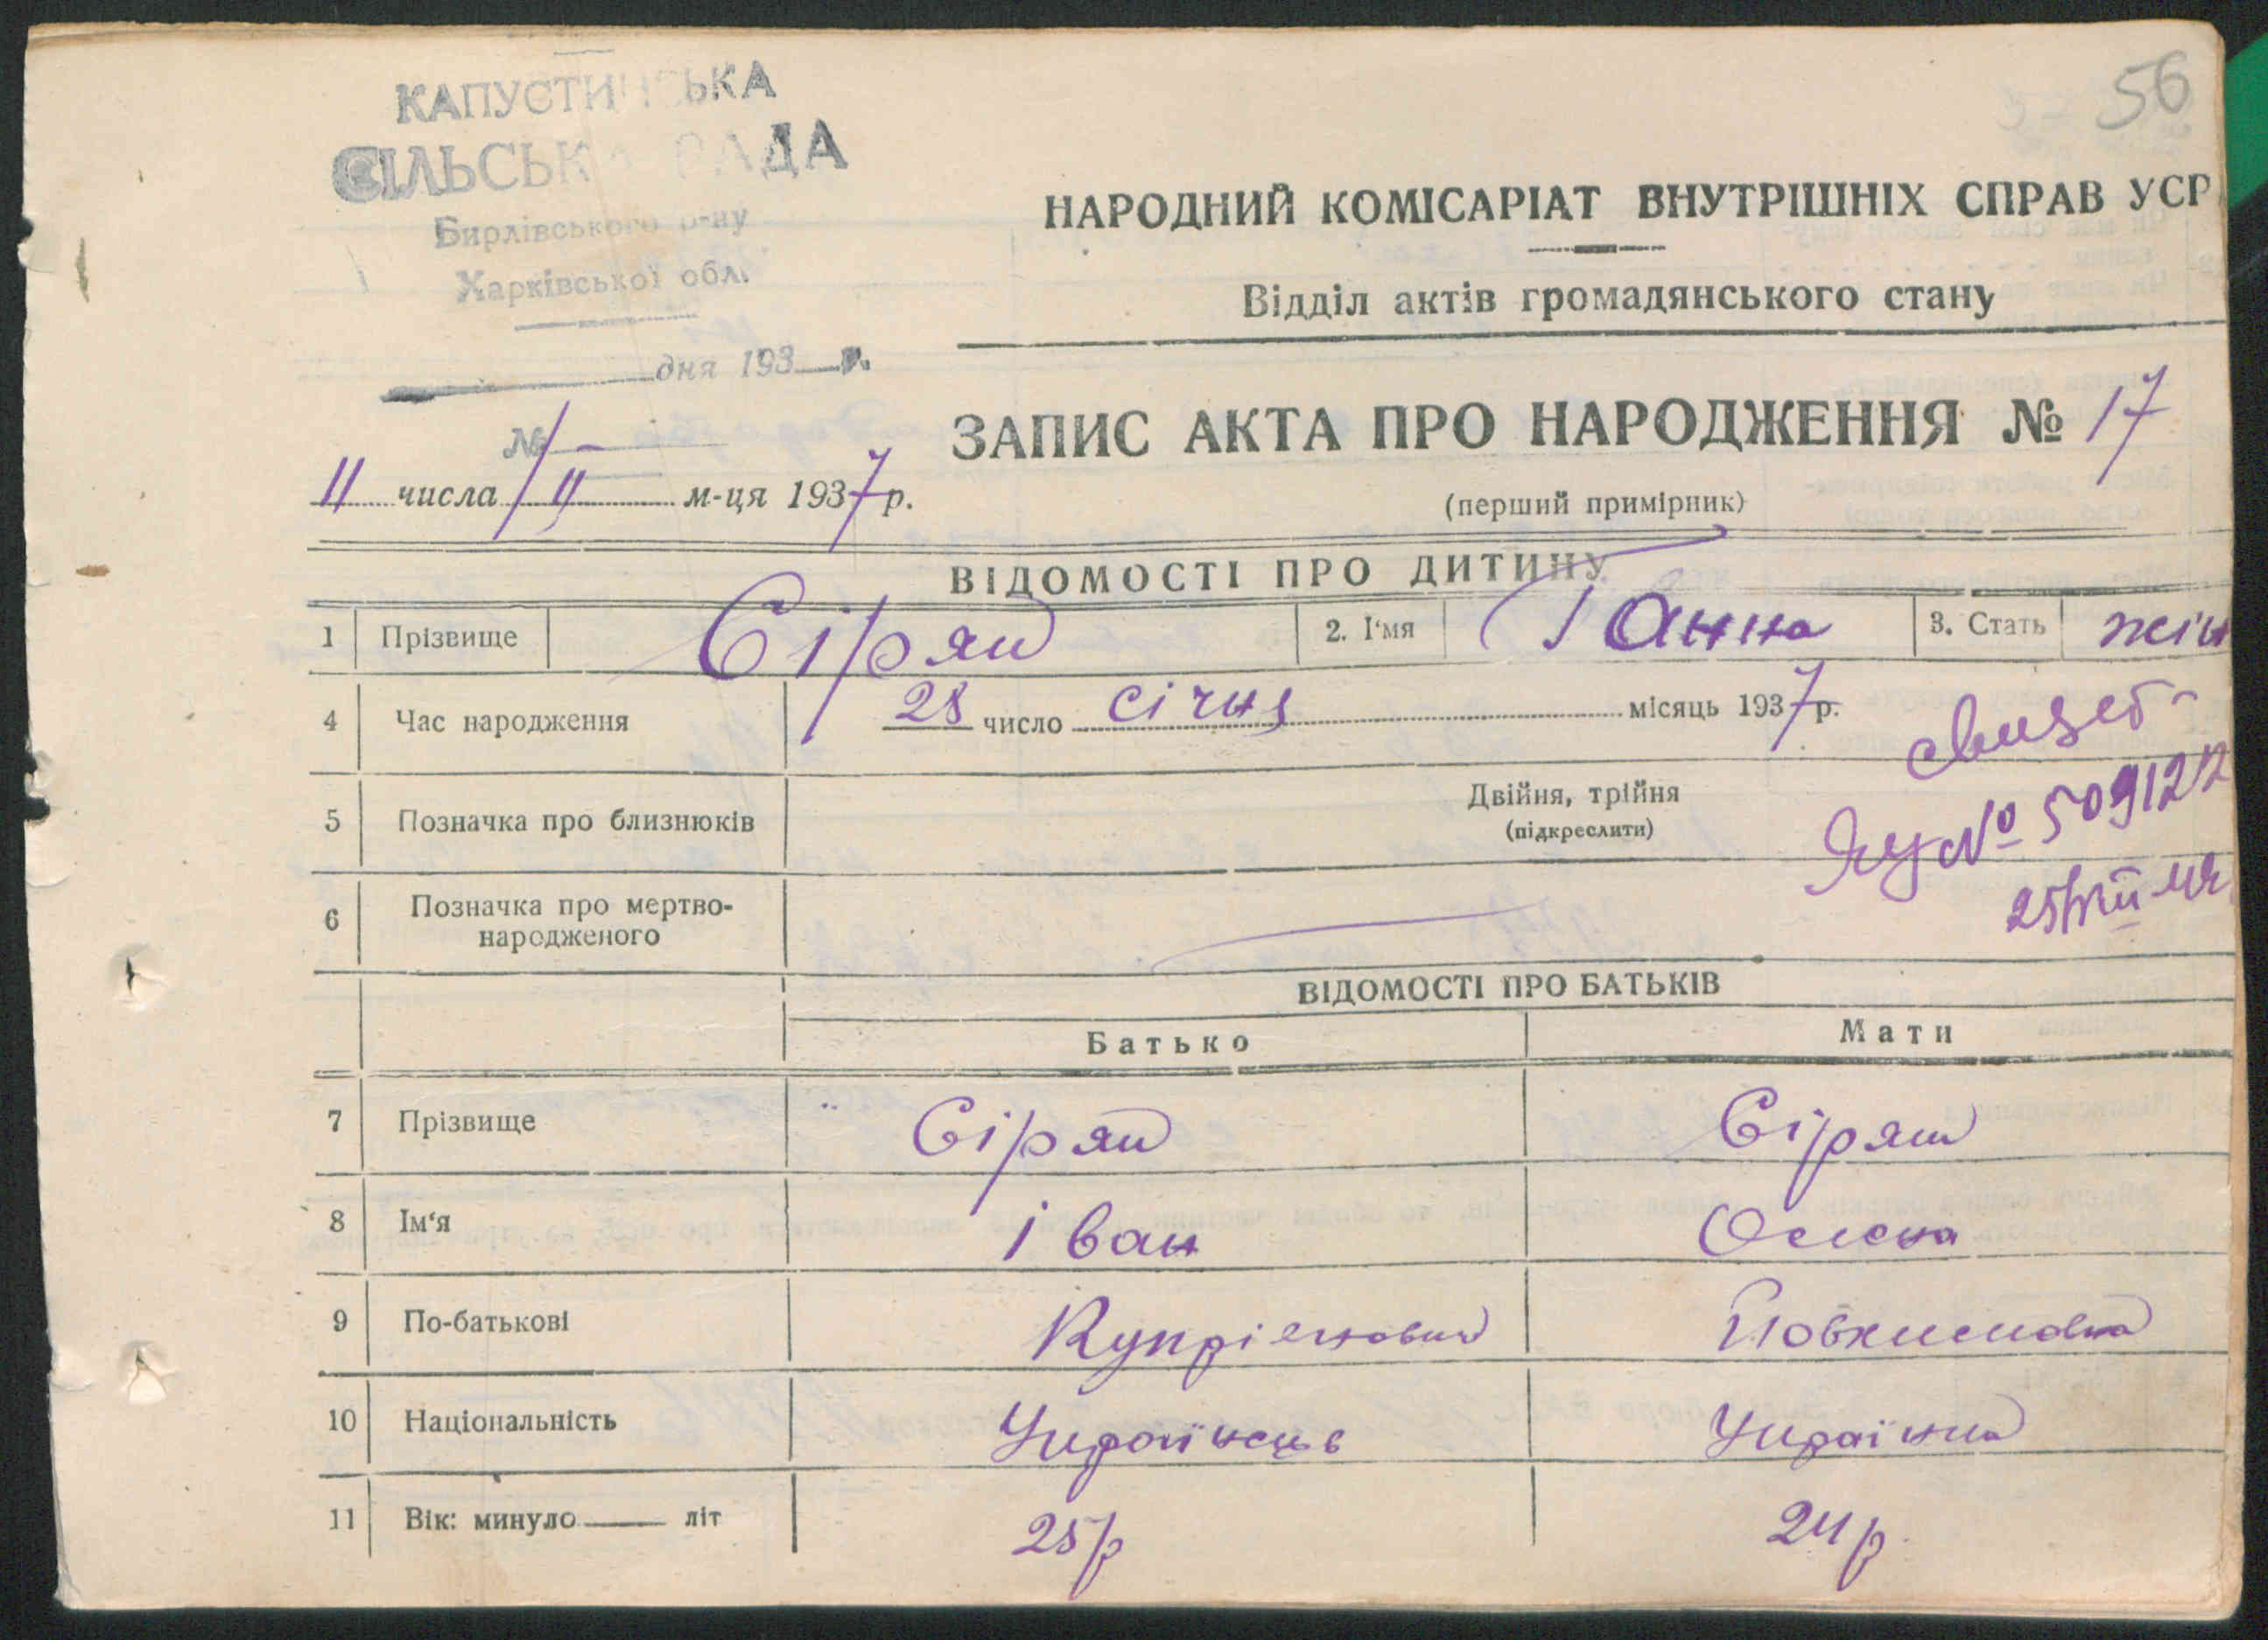 56
КАПУСТИНСЬКА
СІЛЬСЬКА РАДА
Бирлівського р-ну
Харківської обл.
дня 193 р.
№ -
НАРОДНИЙ КОМІСАРІАТ ВНУТРІШНІХ СПРАВ УСР
Відділ актів громадянського стану
ЗАПИС АКТА ПРО НАРОДЖЕННЯ № 17
11 числа II м-ця 1937 р.
(перший примірник)
ВІДОМОСТІ ПРО ДИТИНУ
1 Прізвище Сіряй 2. І'мя Ганна 3. Стать жін
4 Час народження 28 число січня місяць 1937 р.
5 Позначка про близнюків Двійня, трійня
(підкреслити)
№ 509122
6 Позначка про мертво-
народженого
ВІДОМОСТІ ПРО БАТЬКІВ
Батько Мати
7 Прізвище Сіряй Сіряй
8 Ім'я Іван Олена
9 По-батькові Купріянович
10 Національність Українець Українка
11 Вік: минуло літ 25 р 24 р.